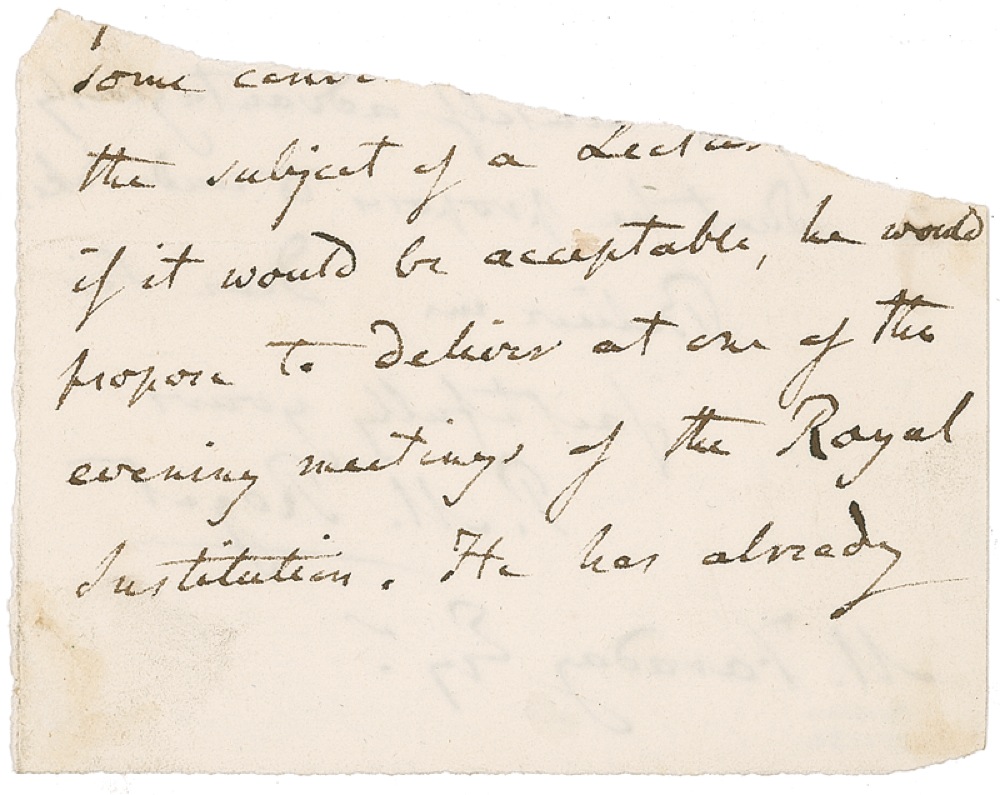 some
the subject of a Lectur
if it would be acceptable, he would
propose to deliver at one of the
evening meetings of the Royal
Institution. He has already
M. Faraday Esq